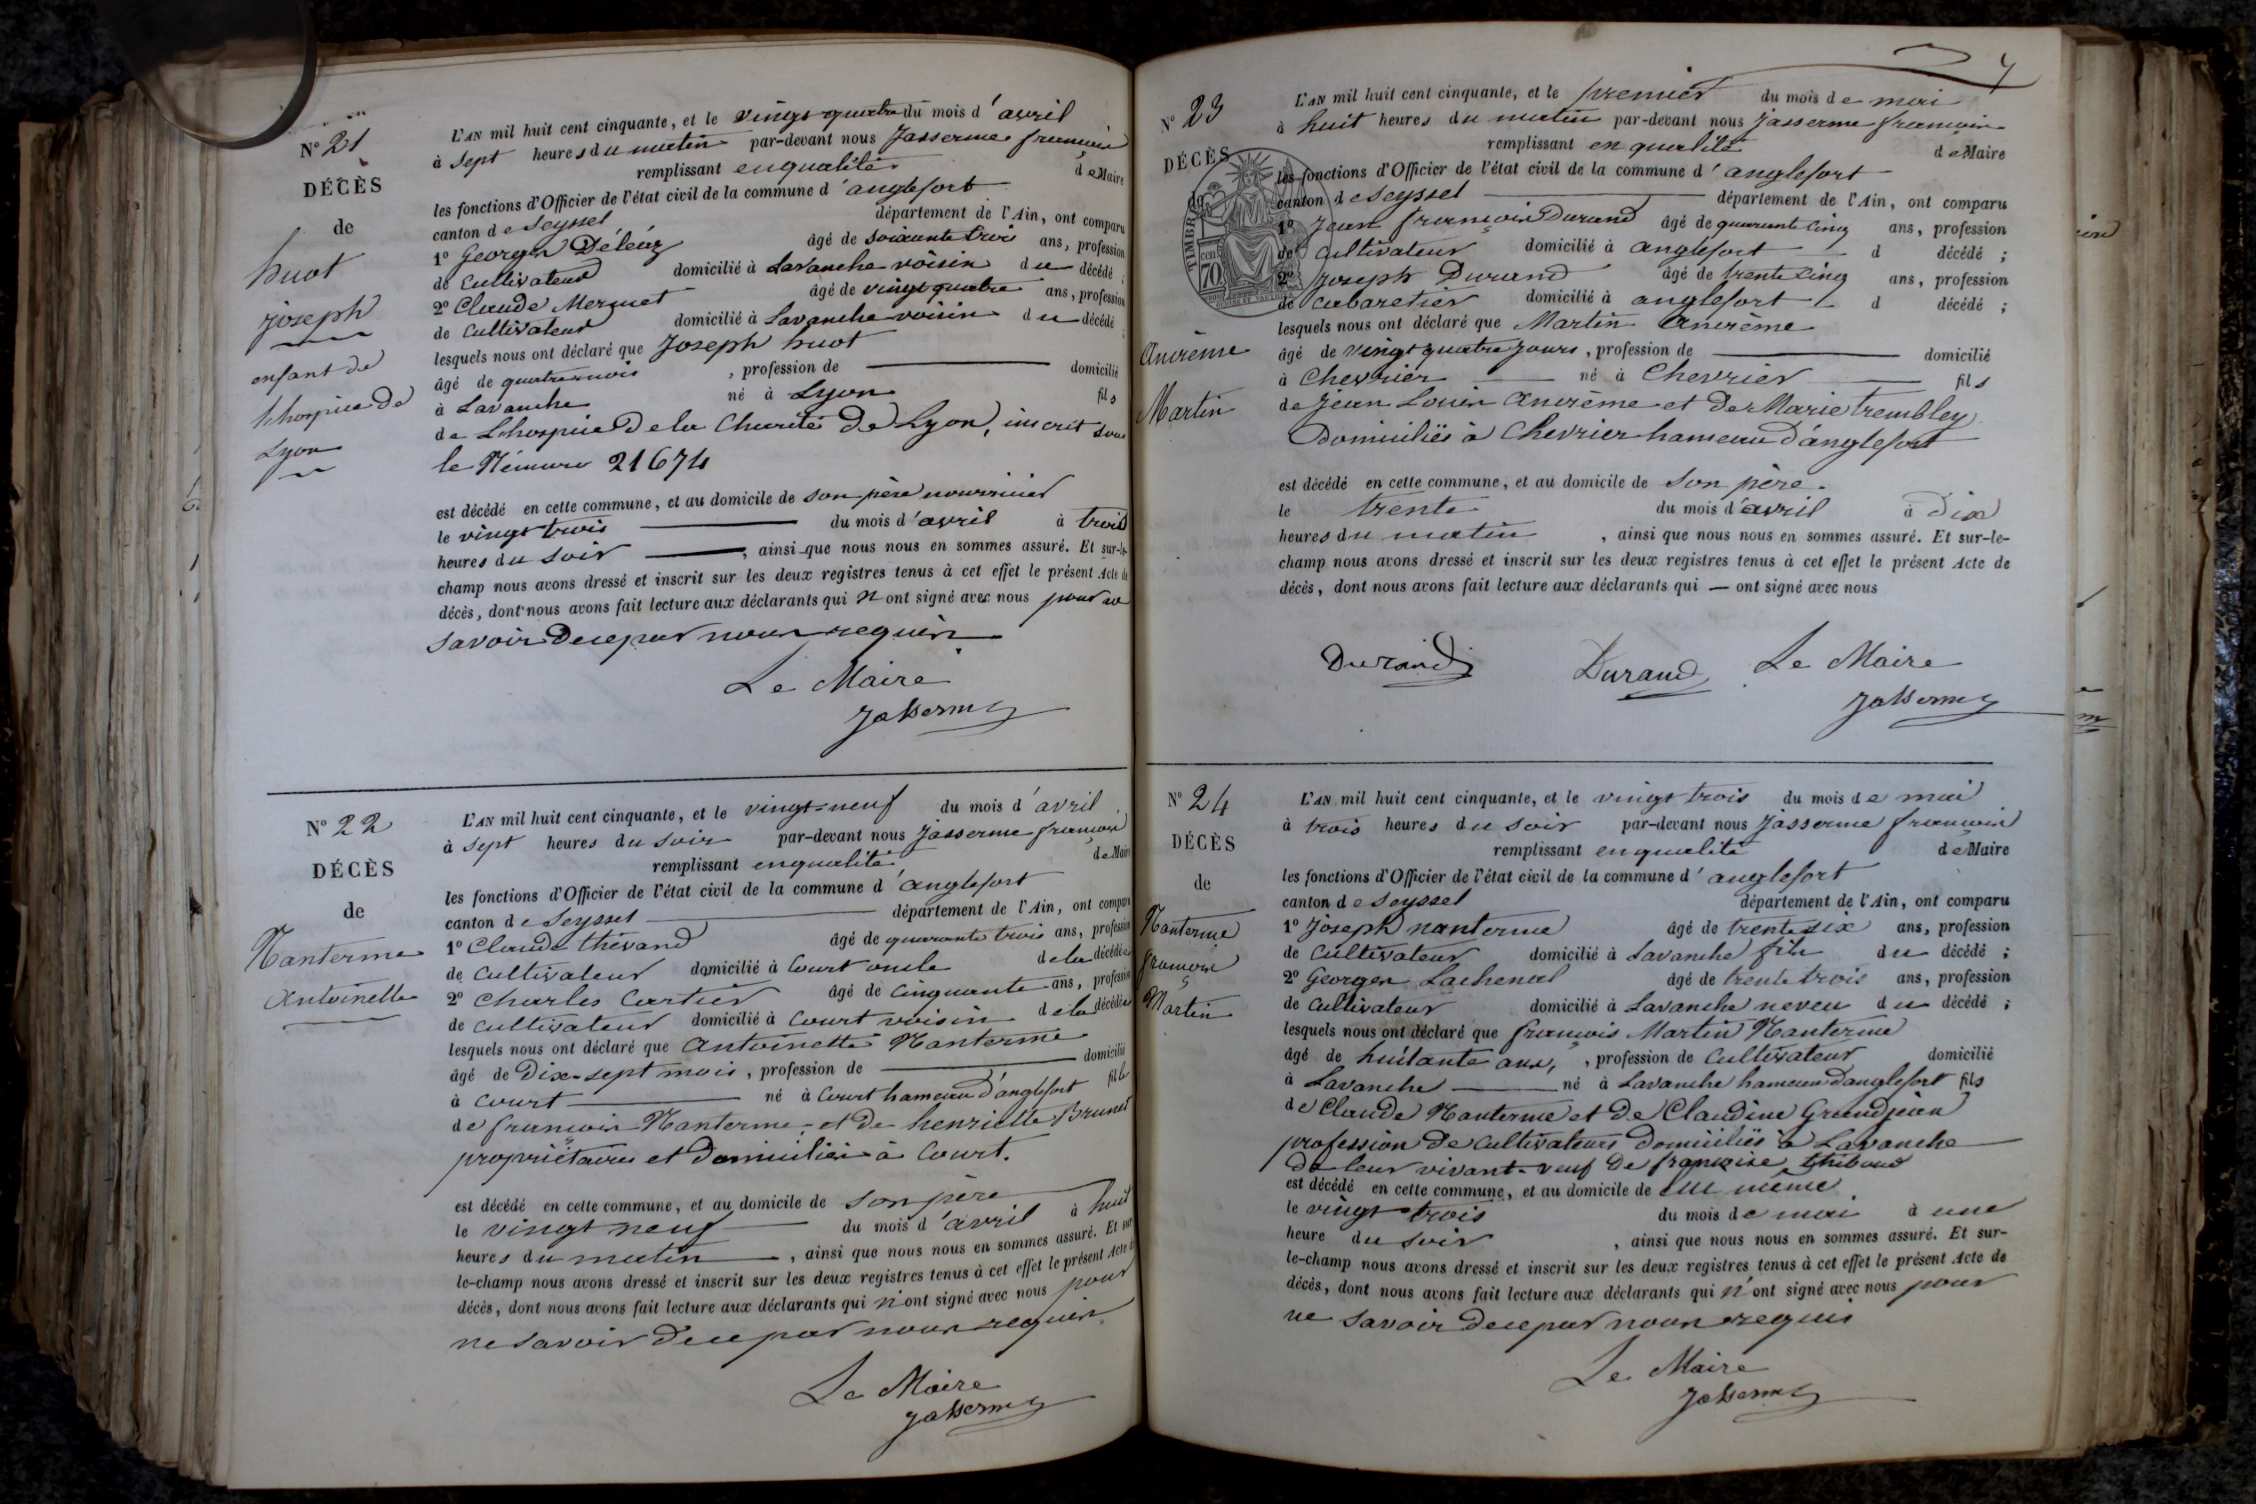 N° 21
DÉCÈS
de
huot
joseph
enfant de
lhospice de
Lyon
L'AN mil huit cent cinquante, et le vingt quatre du mois d'avril
à sept heures du matin par-devant nous Jasserme françois
remplissant en qualité de Maire
les fonctions d'Officier de l'état civil de la commune d'anglefort
canton de Seyssel département de l'Ain, ont comparu
1° Georges Déléaz âgé de soixante trois ans, profession
de cultivateur domicilié à Lavanche voisin du décédé ;
2° Claude Merguet âgé de vingt quatre ans, profession
de cultivateur domicilié à Lavanche voisin du décédé ;
lesquels nous ont déclaré que Joseph huot
âgé de quatre mois , profession de domicilié
à Lavanche né à Lyon fils
de Lhospice De la Charité De Lyon, inscrit sous
le Némuro 21674
est décédé en cette commune, et au domicile de son père nourricier
le vingt trois du mois d'avril à trois
heures du soir , ainsi que nous nous en sommes assuré. Et sur-le-
champ nous avons dressé et inscrit sur les deux registres tenus à cet effet le présent Acte de
décès, dont nous avons fait lecture aux déclarants qui n'ont signé avec nous pour ne
savoir De ce par nous requis
Le Maire
Jasserme
N° 22
DÉCÈS
de
Nanterme
Antoinette
L'AN mil huit cent cinquante, et le vingt-neuf du mois d'avril
à sept heures du soir par-devant nous Jasserme françois
remplissant en qualité de Maire
les fonctions d'Officier de l'état civil de la commune d'anglefort
canton de Seyssel département de l'Ain, ont comparu
1° Claude thévand âgé de quarante trois ans, profession
de cultivateur domicilié à Court oncle de la décédée
2° Charles Cartier âgé de cinquante ans, profession
de cultivateur domicilié à Court voisin de la décédée
lesquels nous ont déclaré que Antoinette Nanterme
âgé de Dix-sept mois , profession de domicilié
à Court né à Court hameau d'anglefort fille
de françois Nanterme et De henriette Brunet
propriétaires et Domiciliés à Court.
est décédé en cette commune, et au domicile de son père
le vingt neuf du mois d'avril à huit
heures du matin , ainsi que nous nous en sommes assuré. Et sur-
le-champ nous avons dressé et inscrit sur les deux registres tenus à cet effet le présent Acte de
décès, dont nous avons fait lecture aux déclarants qui n'ont signé avec nous pour
ne savoir De ce par nous requis
Le Maire
Jasserme
7
N° 23
DÉCÈS
de
TIMBRE
70
Ancrème
Martin
L'AN mil huit cent cinquante, et le premier du mois de mai
à huit heures du matin par-devant nous Jasserme françois
remplissant en qualité de Maire
les fonctions d'Officier de l'état civil de la commune d'anglefort
canton de Seyssel département de l'Ain, ont comparu
1° Jean françois Durand âgé de quarante cinq ans, profession
de cultivateur domicilié à anglefort d décédé ;
2° Joseph Durand âgé de trente cinq ans, profession
de cabaretier domicilié à anglefort d décédé ;
lesquels nous ont déclaré que Martin Ancrème
âgé de vingt quatre jours , profession de domicilié
à Chevrier né à Chevrier fils
de Jean Louis Ancrème et De Marie trembley
Domiciliés à Chevrier hameau d'anglefort
est décédé en cette commune, et au domicile de son père.
le trente du mois d'avril à Dix
heures du matin , ainsi que nous nous en sommes assuré. Et sur-le-
champ nous avons dressé et inscrit sur les deux registres tenus à cet effet le présent Acte de
décès, dont nous avons fait lecture aux déclarants qui — ont signé avec nous
Durand Durand Le Maire
Jasserme
N° 24
DÉCÈS
de
Nanterme
françois
Martin
L'AN mil huit cent cinquante, et le vingt trois du mois de mai
à trois heures du soir par-devant nous Jasserme françois
remplissant en qualité de Maire
les fonctions d'Officier de l'état civil de la commune d'anglefort
canton de Seyssel département de l'Ain, ont comparu
1° Joseph nanterme âgé de trente six ans, profession
de cultivateur domicilié à Lavanche fils du décédé ;
2° Georges Lachenal âgé de trente trois ans, profession
de cultivateur domicilié à Lavanche neveu du décédé ;
lesquels nous ont déclaré que françois Martin Nanterme
âgé de huitante ans, , profession de cultivateur domicilié
à Lavanche né à Lavanche hameau d'anglefort fils
de Claude Nanterme et De Claudine Grandjean
profession De cultivateurs Domiciliés à Lavanche
De leur vivant. veuf De françoise thiboud
est décédé en cette commune, et au domicile de lui même
le vingt trois du mois de mai à une
heure du soir , ainsi que nous nous en sommes assuré. Et sur-
le-champ nous avons dressé et inscrit sur les deux registres tenus à cet effet le présent Acte de
décès, dont nous avons fait lecture aux déclarants qui n'ont signé avec nous pour
ne savoir De ce par nous requis
Le Maire
Jasserme